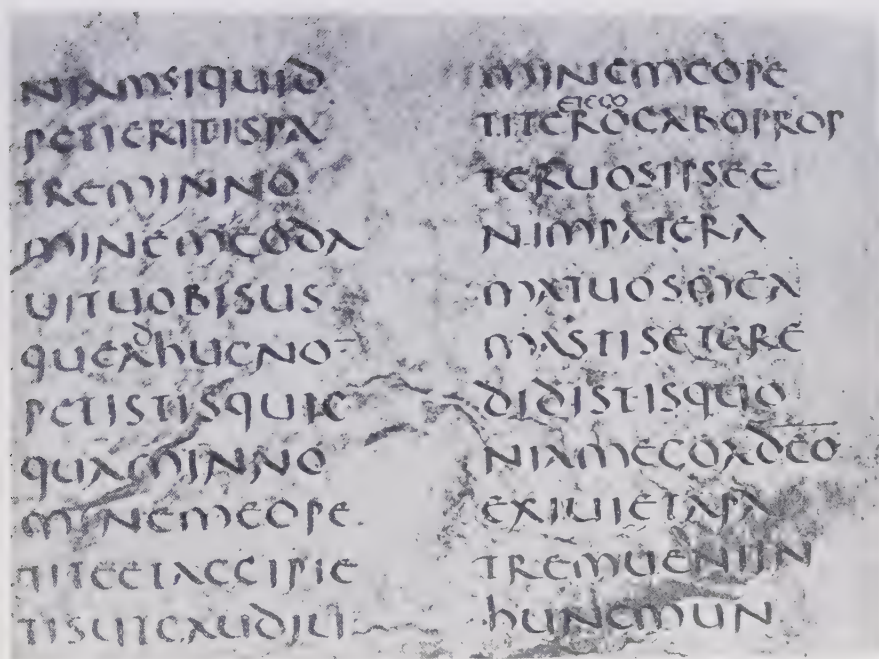 NIAMSIQUID
PETIERITISPA
TREMINNO
MINEMEODA
UITUOBISUS
QUEADHUCNO
PETISTISQUIC
QUAMINNO
MINEMEOPE
TITEETACCIPIE
TISUTGAUDIU
MINEMEOPE
ETEGO
TITEROGABOPROP
TERUOSIPSEE
NIMPATERA
MATUOSMEA
MASTISETCRE
DIDISTISQUO
NIAMEGOADEO
EXIUIETAPA
TREMUENIIN
HUNCMUN